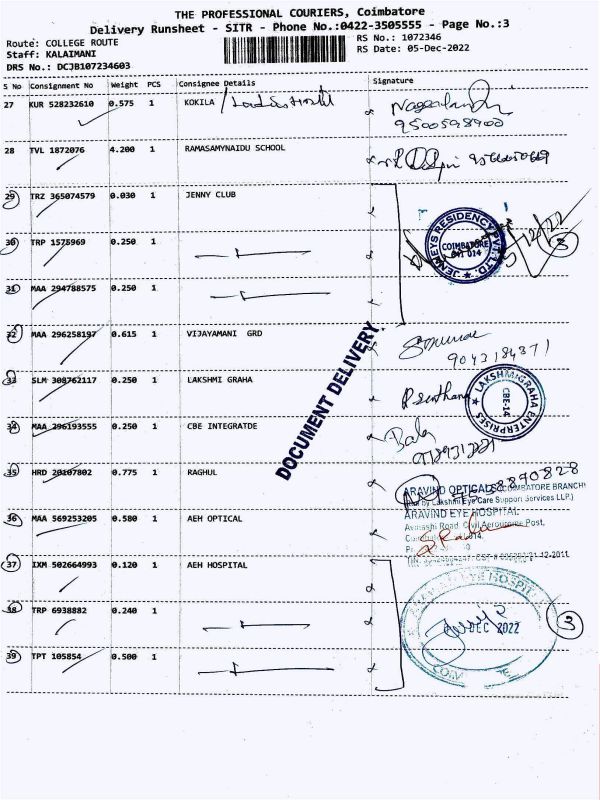 THE PROFESSIONAL COURIERS, Coimbatore
Delivery Runsheet - SITR - Phone No.:0422-3505555 - Page No.:3
Route: COLLEGE ROUTE
Staff: KALAIMANI
DRS No.: DCJB107234603
RS No.: 1072346
RS Date: 05-Dec-2022
S No Consignment No Weight PCS Consignee Details Signature
27 KUR 528232610 0.575 1 KOKILA
9500598900
28 TVL 1872076 4.200 1 RAMASAMYNAIDU SCHOOL
29 TRZ 365074579 0.030 1 JENNY CLUB
30 TRP 1575969 0.250 1
JENNEYS RESIDENCY PVT. LTD
COIMBATORE
641 014
3
31 MAA 294788575 0.250 1
32 MAA 296258197 0.615 1 VIJAYAMANI GRD
9043184371
DOCUMENT DELIVERY
33 SLM 308762117 0.250 1 LAKSHMI GRAHA
LAKSHMIGRAHA ENTERPRISES
CBE-14
34 MAA 296193555 0.250 1 CBE INTEGRATDE
Bala
35 HRD 20107802 0.775 1 RAGHUL
ARAVIND OPTICALS COIMBATORE BRANCH
Lakshmi Eye Care Support Services LLP.)
36 MAA 569253205 0.580 1 AEH OPTICAL
ARAVIND EYE HOSPITAL
Avinashi Road, Civil Aerodrome Post,
37 IXM 502664993 0.120 1 AEH HOSPITAL
38 TRP 6938882 0.240 1
EYE HOSPITAL
DEC 2022
3
39 TPT 105854 0.500 1